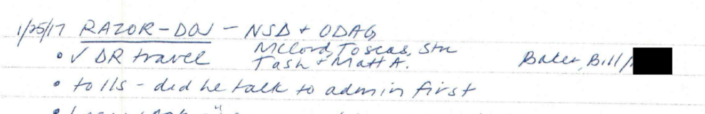 1/25/17 RAZOR-DOJ - NSD + ODAG
• ✓ DR travel McCord, Toscas, Stu
Tash + Matt A. Baker, Bill/
• tolls - did he talk to admin first